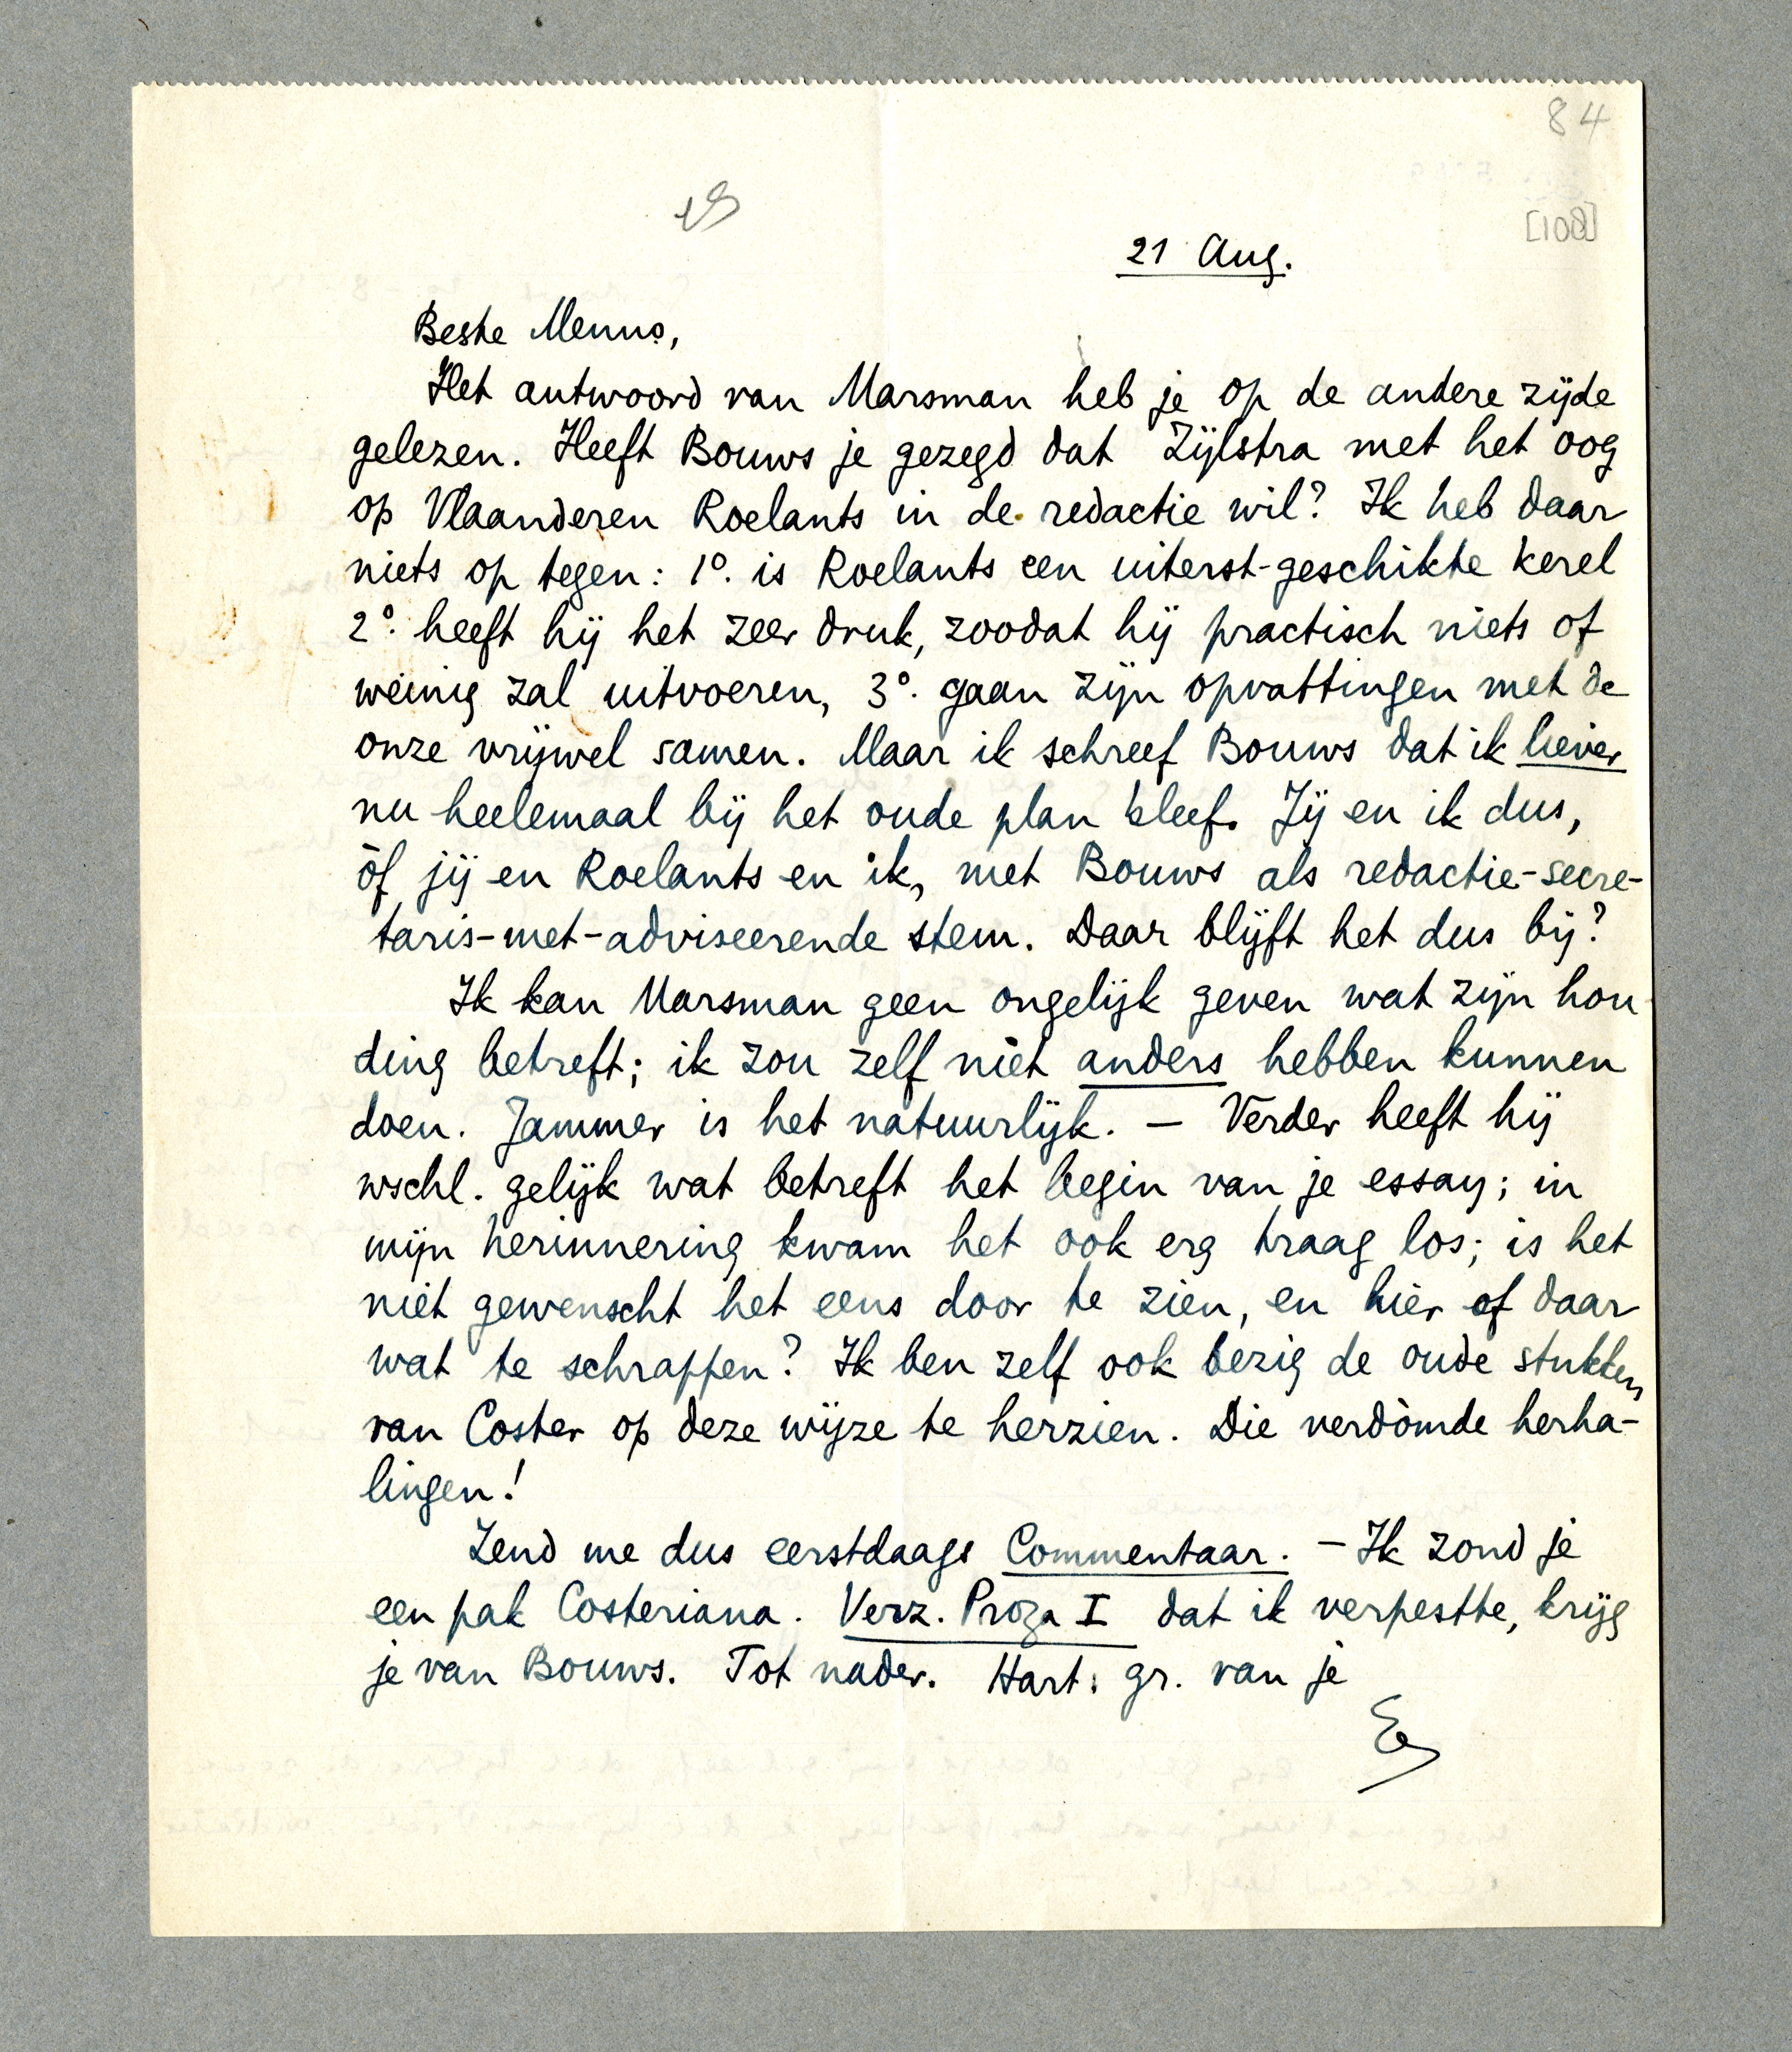 84
[108]
21 Aug.
Beste Menno,
Het antwoord van Marsman heb je op de andere zijde
gelezen. Heeft Bouws je gezegd dat Zijlstra met het oog
op Vlaanderen Roelants in de redactie wil? Ik heb daar
niets op tegen: 1º. is Roelants een uiterst-geschikte kerel
2º. heeft hij het zeer druk, zoodat hij practisch niets of
weinig zal uitvoeren, 3º. gaan zijn opvattingen met de
onze vrijwel samen. Maar ik schreef Bouws dat ik liever
nu heelemaal bij het oude plan bleef. Jij en ik dus,
òf jij en Roelants en ik, met Bouws als redactie-secre-
taris-met-adviseerende stem. Daar blijft het dus bij?
Ik kan Marsman geen ongelijk geven wat zijn hou-
ding betreft; ik zou zelf niet anders hebben kunnen
doen. Jammer is het natuurlijk. — Verder heeft hij
wschl. gelijk wat betreft het begin van je essay; in
mijn herinnering kwam het ook erg traag los; is het
niet gewenscht het eens door te zien, en hier of daar
wat te schrappen? Ik ben zelf ook bezig de oude stukken
van Coster op deze wijze te herzien. Die verdòmde herha-
lingen!
Zend me dus eerstdaags Commentaar. — Ik zond je
een pak Costeriana. Verz. Proza I dat ik verpestte, krijg
je van Bouws. Tot nader. Hart. gr. van je
E